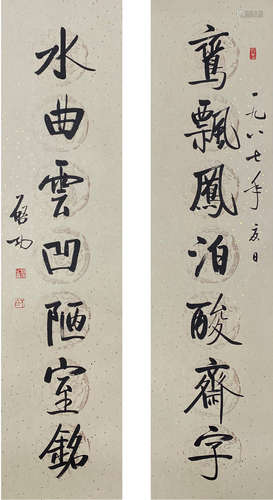 鸾飘鳳泊酸齋字
一九八七年夏日
水曲雲凹陋室銘
啟功